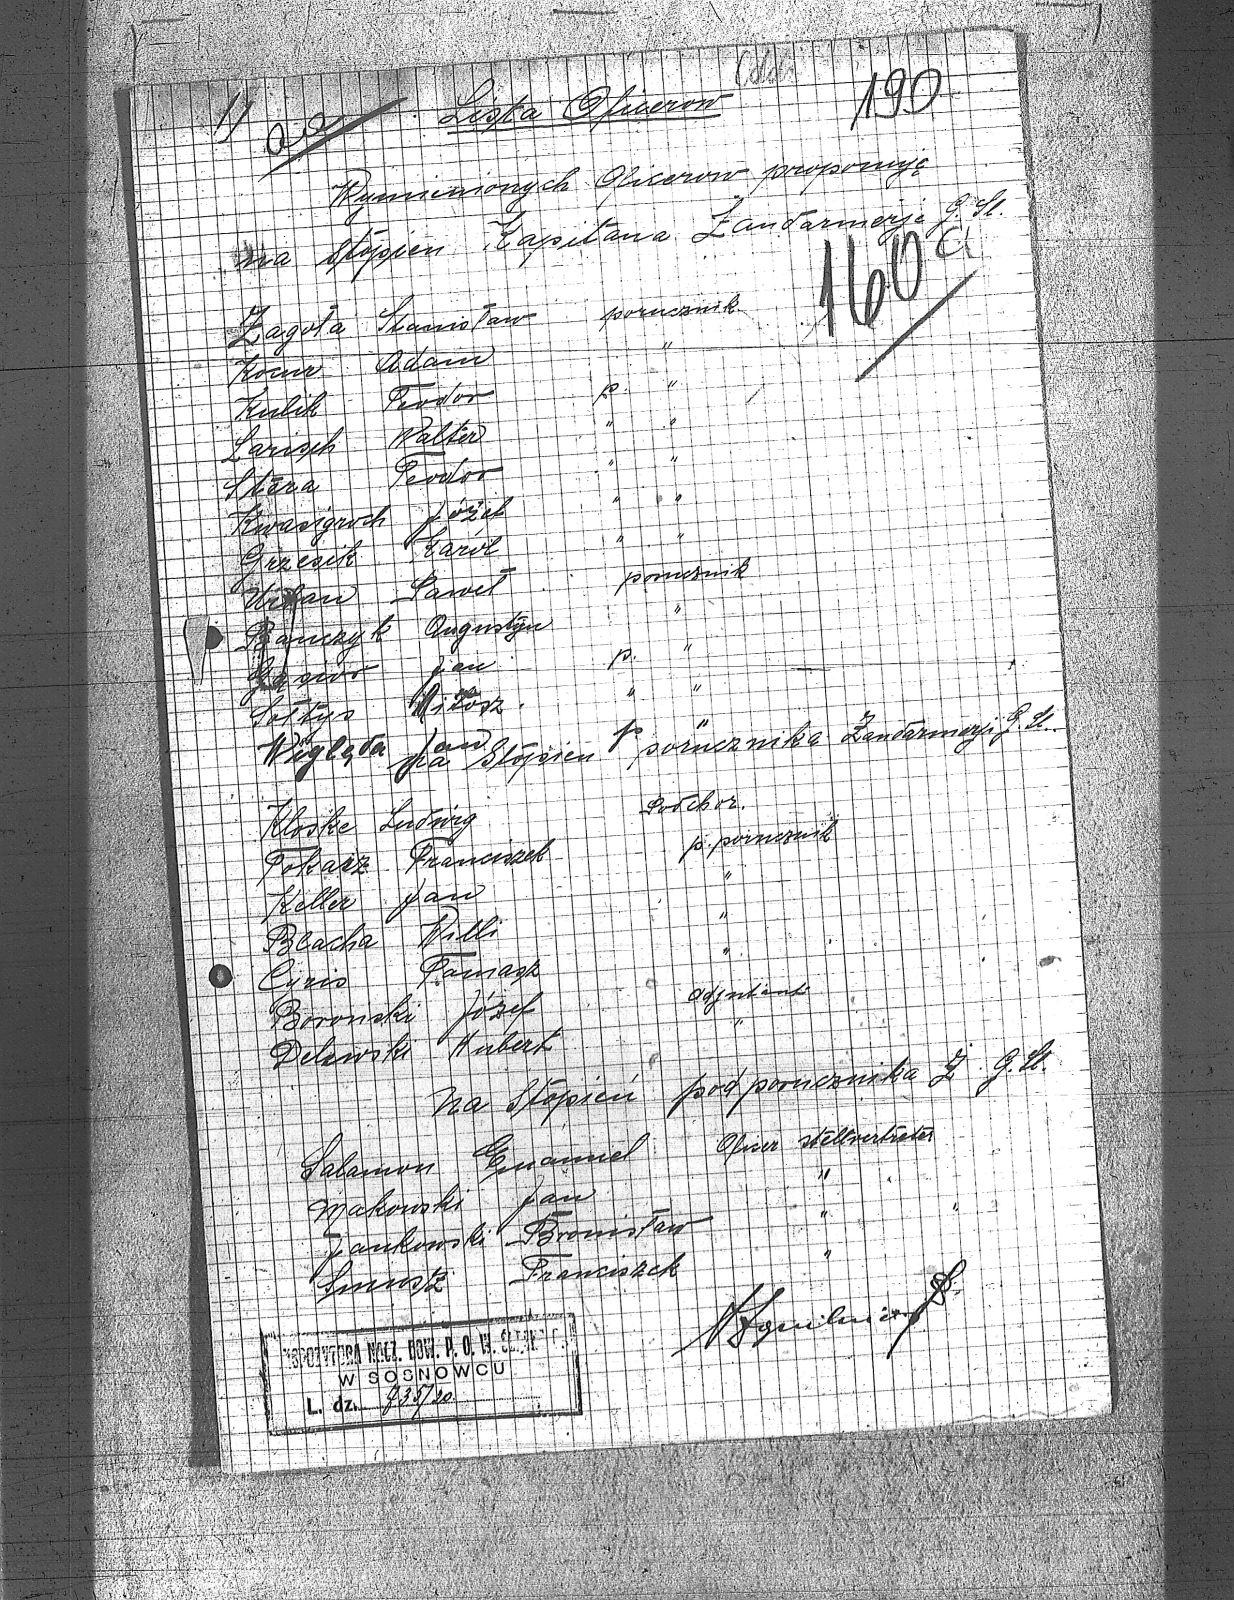 1)
Lista Oficerow
190
Wymienionych Oficerow proponuję
na stopien Kapitana Żandarmerji G. Śl.
160 a
Żagoła Stanisław porucznik
Kocur Adam "
Kulik Teodor p. "
Larisch Walter " "
Stera Teodor " "
Kwasigroch Józef " "
Grzesik Karol " "
Paweł porucznik
Banczyk Augustyn "
Gąsior Jan p. "
Sołtys Miłosz " "
Węględa Jan p "
na Stopien porucznika Żandarmerji G. Śl.
Kloske Ludwig Podchor.
Tokarz Franciszek p. porucznik
Keller Jan "
Blacha Willi "
Cyris Tomasz "
Boronski Józef adjutant
Delawski Hubert "
na Stopień podporucznika Ż. G. Śl.
Salamon Emanuel Oficer stellvertreter
Makowski Jan "
Jankowski Bronisław " "
Smusz Franciszek "
NACZ. DOW. P. O. W.
W SOSNOWCU
L. dz. 735/20